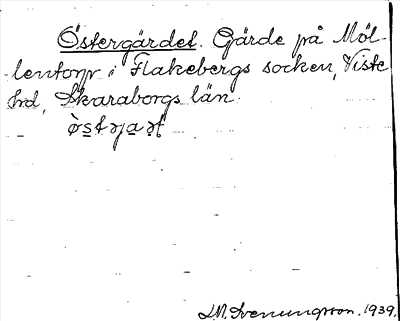 Östergärdet. Gärde på Möl-
lentorp i Flakebergs socken, Viste
hd, Skaraborgs län.
J.M. Svenungsson. 1939.